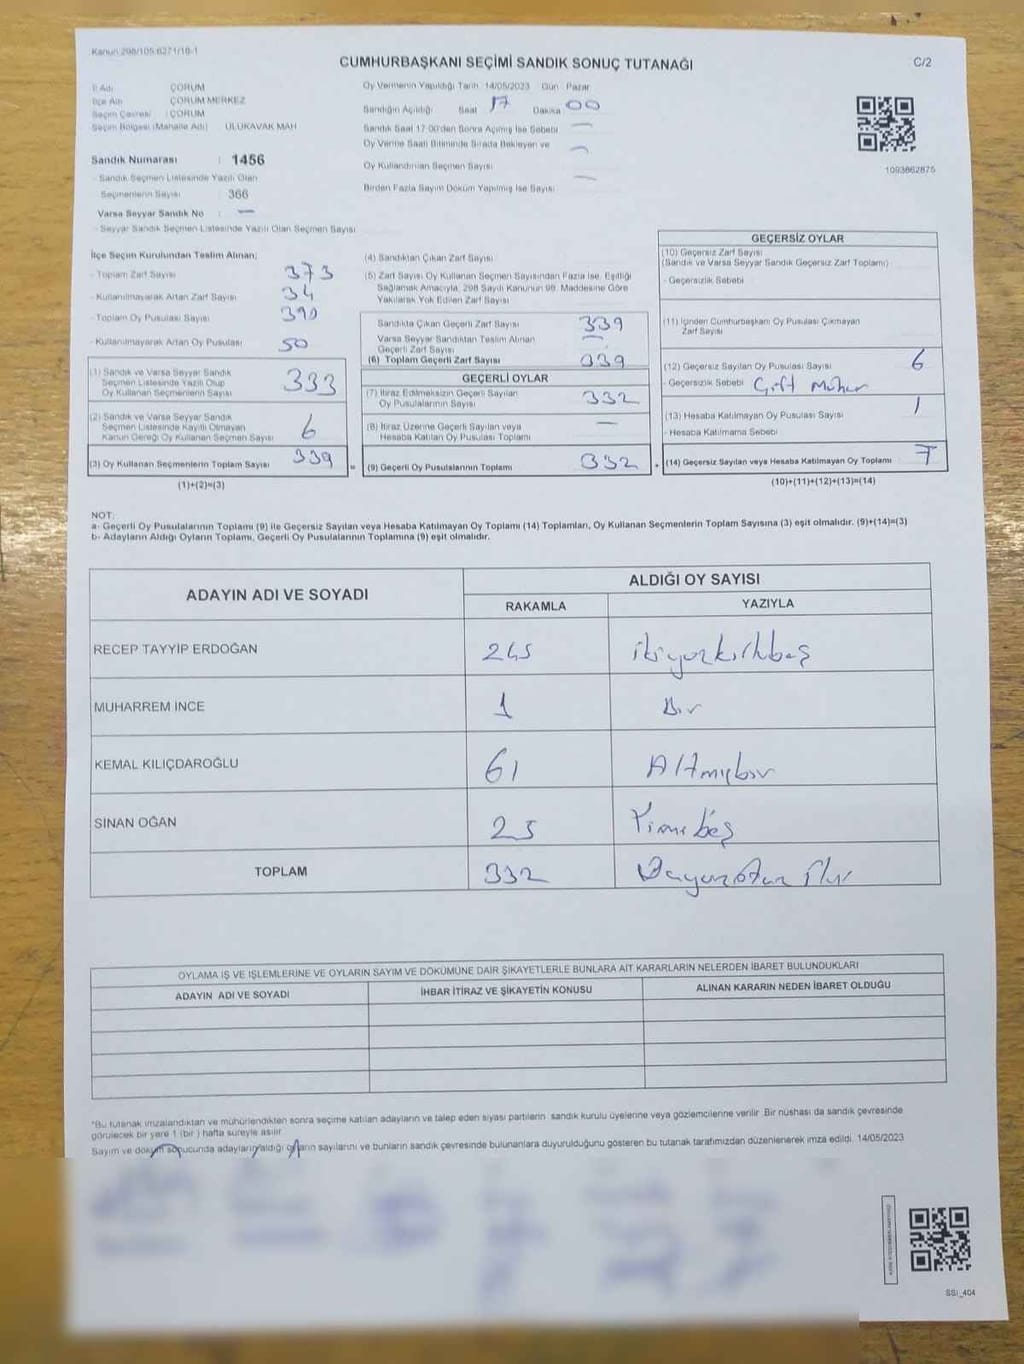 Kanun 298/105-6271/16-1
CUMHURBAŞKANI SEÇİMİ SANDIK SONUÇ TUTANAĞI
C/2
İl Adı ÇORUM
İlçe Adı ÇORUM MERKEZ
Seçim Çevresi : ÇORUM
Seçim Bölgesi (Mahalle Adı) ULUKAVAK MAH
Sandık Numarası : 1456
- Sandık Seçmen Listesinde Yazılı Olan
Seçmenlerin Sayısı : 366
Varsa Seyyar Sandık No : —
- Seyyar Sandık Seçmen Listesinde Yazılı Olan Seçmen Sayısı
Oy Vermenin Yapıldığı Tarih 14/05/2023 Gün Pazar
Sandığın Açıldığı Saat 17 Dakika 00
Sandık Saat 17:00'den Sonra Açılmış İse Sebebi —
Oy Verme Saati Bitiminde Sırada Bekleyen ve
Oy Kullandırılan Seçmen Sayısı —
Birden Fazla Sayım Döküm Yapılmış İse Sayısı —
1093662875
İlçe Seçim Kurulundan Teslim Alınan:
- Toplam Zarf Sayısı 373
- Kullanılmayarak Artan Zarf Sayısı 34
- Toplam Oy Pusulası Sayısı 390
- Kullanılmayarak Artan Oy Pusulası 50
(1) Sandık ve Varsa Seyyar Sandık
Seçmen Listesinde Yazılı Olup
Oy Kullanan Seçmenlerin Sayısı 333
(2) Sandık ve Varsa Seyyar Sandık
Seçmen Listesinde Kayıtlı Olmayan
Kanun Gereği Oy Kullanan Seçmen Sayısı 6
(3) Oy Kullanan Seçmenlerin Toplam Sayısı 339
(1)+(2)=(3)
(4) Sandıktan Çıkan Zarf Sayısı
(5) Zarf Sayısı Oy Kullanan Seçmen Sayısından Fazla İse, Eşitliği
Sağlamak Amacıyla, 298 Sayılı Kanunun 98. Maddesine Göre
Yakılarak Yok Edilen Zarf Sayısı
Sandıkta Çıkan Geçerli Zarf Sayısı 339
Varsa Seyyar Sandıktan Teslim Alınan
Geçerli Zarf Sayısı —
(6) Toplam Geçerli Zarf Sayısı 339
GEÇERLİ OYLAR
(7) İtiraz Edilmeksizin Geçerli Sayılan
Oy Pusulalarının Sayısı 332
(8) İtiraz Üzerine Geçerli Sayılan veya
Hesaba Katılan Oy Pusulası Toplamı —
= (9) Geçerli Oy Pusulalarının Toplamı 332
GEÇERSİZ OYLAR
(10) Geçersiz Zarf Sayısı
(Sandık ve Varsa Seyyar Sandık Geçersiz Zarf Toplamı)
- Geçersizlik Sebebi
(11) İçinden Cumhurbaşkanı Oy Pusulası Çıkmayan
Zarf Sayısı
(12) Geçersiz Sayılan Oy Pusulası Sayısı 6
- Geçersizlik Sebebi Çift Mühür
(13) Hesaba Katılmayan Oy Pusulası Sayısı 1
- Hesaba Katılmama Sebebi
+ (14) Geçersiz Sayılan veya Hesaba Katılmayan Oy Toplamı 7
(10)+(11)+(12)+(13)=(14)
NOT:
a- Geçerli Oy Pusulalarının Toplamı (9) ile Geçersiz Sayılan veya Hesaba Katılmayan Oy Toplamı (14) Toplamları, Oy Kullanan Seçmenlerin Toplam Sayısına (3) eşit olmalıdır. (9)+(14)=(3)
b- Adayların Aldığı Oyların Toplamı, Geçerli Oy Pusulalarının Toplamına (9) eşit olmalıdır.
ADAYIN ADI VE SOYADI
ALDIĞI OY SAYISI
RAKAMLA YAZIYLA
RECEP TAYYİP ERDOĞAN 245 ikiyüzkırkbeş
MUHARREM İNCE 1 Bir
KEMAL KILIÇDAROĞLU 61 Altmışbir
SİNAN OĞAN 25 Yirmibeş
TOPLAM 332 Üçyüzotuziki
OYLAMA İŞ VE İŞLEMLERİNE VE OYLARIN SAYIM VE DÖKÜMÜNE DAİR ŞİKAYETLERLE BUNLARA AİT KARARLARIN NELERDEN İBARET BULUNDUKLARI
ADAYIN ADI VE SOYADI İHBAR İTİRAZ VE ŞİKAYETİN KONUSU ALINAN KARARIN NEDEN İBARET OLDUĞU
"Bu tutanak imzalandıktan ve mühürlendikten sonra seçime katılan adayların ve talep eden siyasi partilerin sandık kurulu üyelerine veya gözlemcilerine verilir. Bir nüshası da sandık çevresinde
görülecek bir yere 1 (bir) hafta süreyle asılır.
Sayım ve döküm sonucunda adayların aldığı oyların sayılarını ve bunların sandık çevresinde bulunanlara duyurulduğunu gösteren bu tutanak tarafımızdan düzenlenerek imza edildi. 14/05/2023
SSI_404